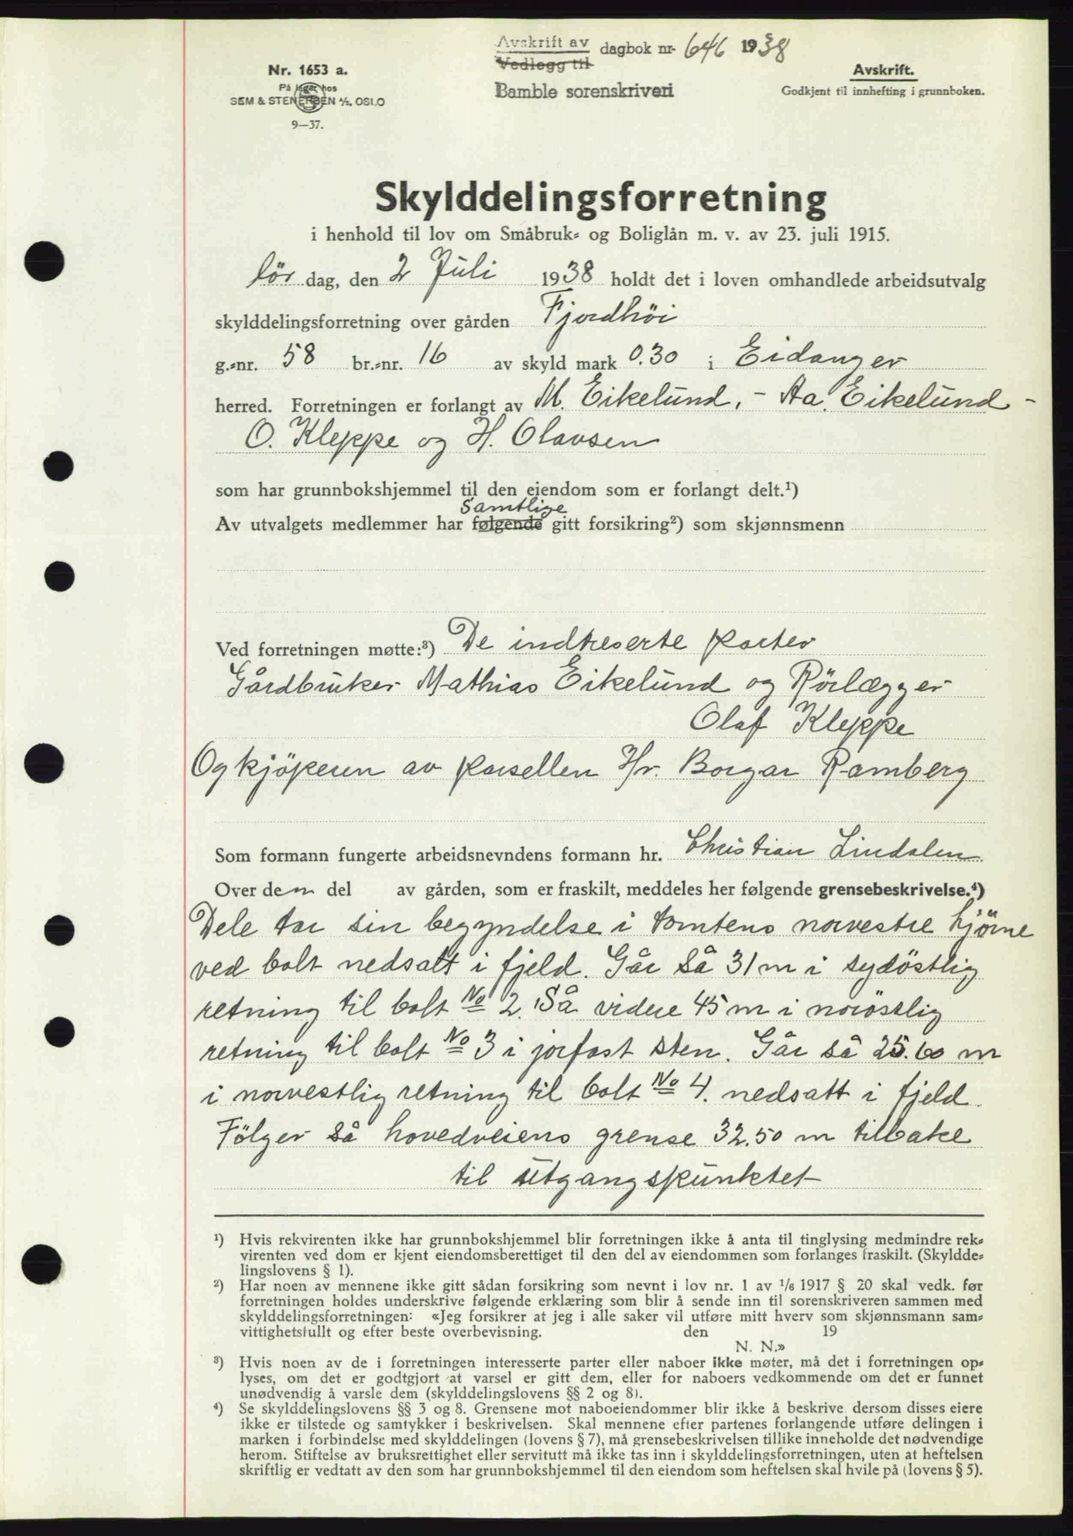 Avskrift av dagbok nr 646 1938
Vedlegg til
Bamble sorenskriveri
Nr. 1653 a.
På lager hos
SEM & STENERSEN A/S, OSLO
9—37.
Avskrift.
Godkjent til innhefting i grunnboken.
Skylddelingsforretning
i henhold til lov om Småbruk- og Boliglån m. v. av 23. juli 1915.
lör dag, den 2 Juli 1938 holdt det i loven omhandlede arbeidsutvalg
skylddelingsforretning over gården Fjordhöi
g.-nr. 58 br.-nr. 16 av skyld mark 0.30 i Eidanger
herred. Forretningen er forlangt av M. Eikelund, - Aa. Eikelund -
O. Kleppe og H. Olavsen
som har grunnbokshjemmel til den eiendom som er forlangt delt.¹)
Samtlige
Av utvalgets medlemmer har følgende gitt forsikring²) som skjønnsmenn
Ved forretningen møtte:³) De indtreserte parter
Gårdbruker Mathias Eikelund og Rörlægger
Olaf Kleppe
Og kjöperen av parsellen Hr. Borgar Ramberg
Som formann fungerte arbeidsnevndens formann hr. Christian Lindalen
Over den del av gården, som er fraskilt, meddeles her følgende grensebeskrivelse.⁴)
Dele tar sin begyndelse i tomtens norvestre hjörne
ved bolt nedsatt i fjeld. Går så 31 m i sydöstlig
retning til bolt No 2. Så videre 45 m i noröstlig
retning til bolt No 3 i jorfast sten. Går så 25.60 m
i norvestlig retning til bolt No 4. nedsatt i fjeld.
Fölger så hovedveiens grense 32.50 m tilbake
til utgangspunktet
¹) Hvis rekvirenten ikke har grunnbokshjemmel blir forretningen ikke å anta til tinglysing medmindre rek-
virenten ved dom er kjent eiendomsberettiget til den del av eiendommen som forlanges fraskilt. (Skyldde-
lingslovens § 1).
²) Har noen av mennene ikke gitt sådan forsikring som nevnt i lov nr. 1 av 1/6 1917 § 20 skal vedk. før
forretningen holdes underskrive følgende erklæring som blir å sende inn til sorenskriveren sammen med
skylddelingsforretningen: «Jeg forsikrer at jeg i alle saker vil utføre mitt hverv som skjønnsmann sam-
vittighetsfullt og efter beste overbevisning. den 19
N. N.»
³) Hvis noen av de i forretningen interesserte parter eller naboer ikke møter, må det i forretningen op-
lyses, om det er godtgjort at varsel er gitt dem, eller for naboers vedkommende om det er funnet
unødvendig å varsle dem (skylddelingslovens §§ 2 og 8).
⁴) Se skylddelingslovens §§ 3 og 8. Grensene mot naboeiendommer blir ikke å beskrive dersom disses eiere
ikke er tilstede og samtykker i beskrivelsen. Skal mennene efter partenes forlangende utføre delingen i
marken i forbindelse med skylddelingen (lovens § 7), må grensebeskrivelsen tillike inneholde det nødvendige
herom. Stiftelse av bruksrettighet eller servitutt må ikke tas inn i skylddelingsforretningen, uten at heftelsen
skriftlig er vedtatt av den som har grunnbokshjemmel til den eiendom som heftelsen skal hvile på (lovens § 5).